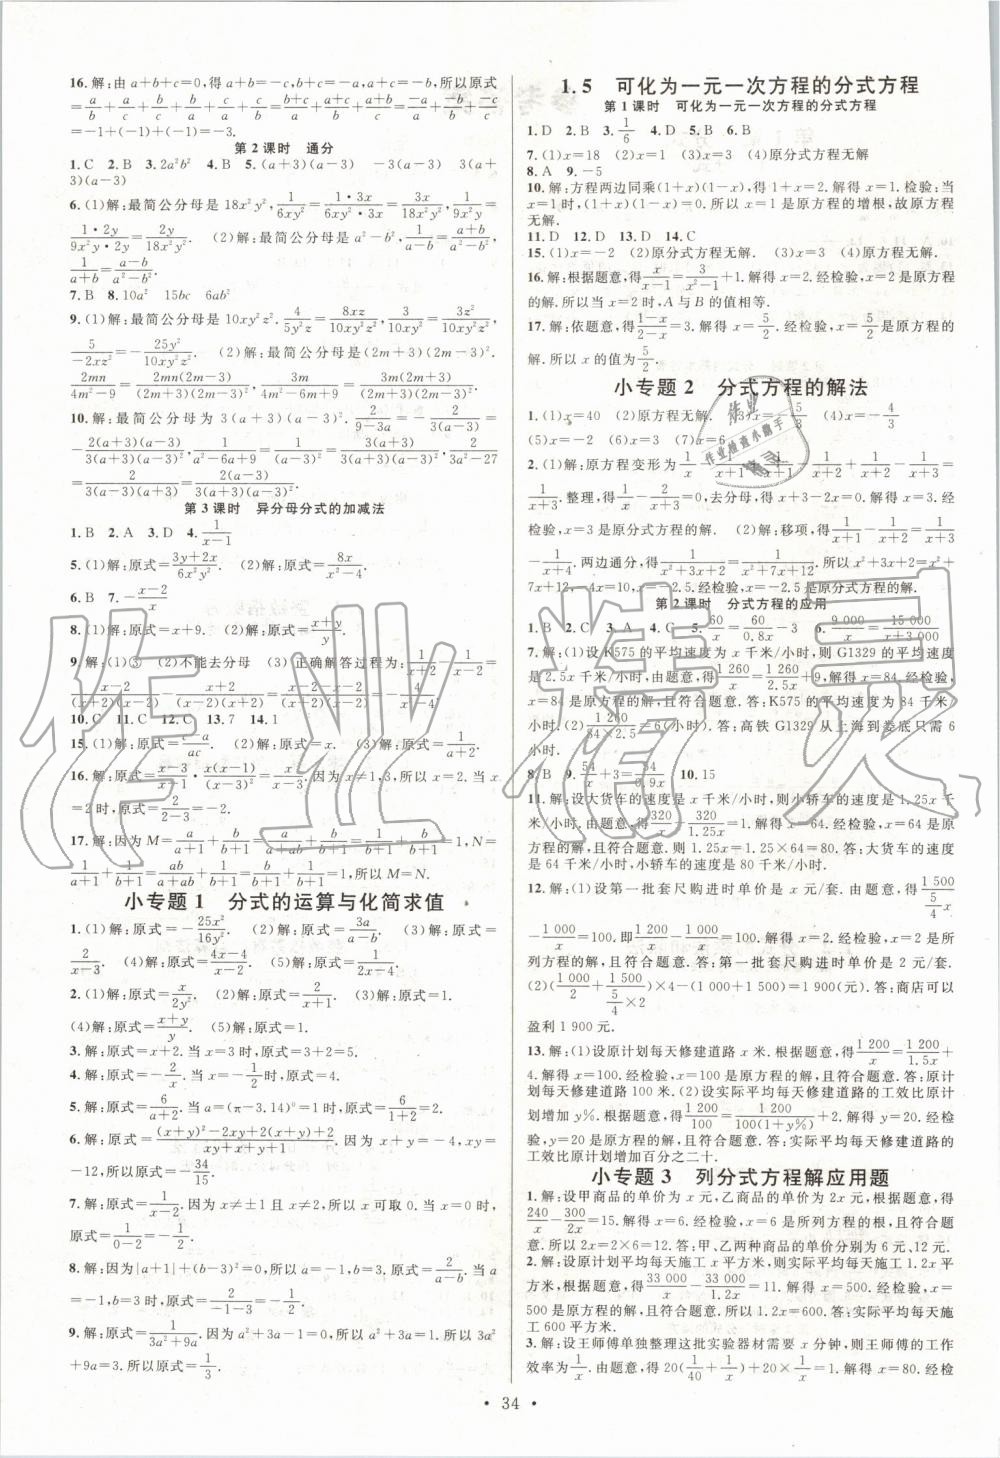 16. 解:由 a+b+c=0,得 a+b=-c,b+c=-a,a+c=-b,所以原式
=a/b+a/c+b/c+b/a+c/a+c/b=(a+c)/b+(a+b)/c+(b+c)/a=(-b)/b+(-c)/c+(-a)/a
=-1+(-1)+(-1)=-3.
第 2 课时 通分
1. C 2. B 3. 2a²b² 4. B 5. (a+3)(a-3) -3(a-3) (a+
3)(a-3)
6. (1)解:最简公分母是 18x²y², 1/(6xy²)=(1·3x)/(6xy²·3x)=3x/(18x²y²), 1/(9x²y)=
(1·2y)/(9x²y·2y)=2y/(18x²y²). (2)解:最简公分母是 a²-b², 1/(a-b)=(a+b)/(a²-b²),
1/(a+b)=(a-b)/(a²-b²).
7. B 8. 10a² 15bc 6ab²
9. (1)解:最简公分母是 10xy²z². 4/(5y²z)=8xz/(10xy²z²), 3/(10xy²)=3z²/(10xy²z²),
5/(-2xz²)=-25y²/(10xy²z²). (2)解:最简公分母是(2m+3)(2m-3)².
2mn/(4m²-9)=2mn(2m-3)/((2m+3)(2m-3)²), (2m-3)/(4m²-6m+9)
10. 解:最简公分母为 3(a+3)(a-3)². 2/(9-3a)=
-2(a+3)(a-3)/(3(a+3)(a-3)²), (a-1)/(a²-6a+9)=3(a-1)(a+3)/(3(a+3)(a-3)²), 2/(3a²-27)=
2/(3(a-3)(a+3))=2(a-3)/(3(a+3)(a-3)²).
第 3 课时 异分母分式的加减法
1. B 2. A 3. D 4. 1/(x-1)
5. (1)解:原式=(3y+2x)/(6x²y²). (2)解:原式=8x/(x²-4).
6. B 7. -(x-2)/x
8. (1)解:原式=x+9. (2)解:原式=(x+y)/y.
9. 解:(1)③ (2)不能去分母 (3)正确解答过程为:
10. C 11. C 12. C 13. 7 14. 1
15. (2)解:原式=x. (3)解:原式=1/(a+2).
16. 解:原式=(x-3)/(x-1)·x(x-1)/(x-3)²=x/(x-3). 因为 x≠1,x≠3,所以当 x
=2 时,原式=2/(2-3)=-2.
17. 解:因为 M=a/(a+1)+b/(b+1)
小专题 1 分式的运算与化简求值
1. (1)解:原式=-25x²/(16y²). (2)解:原式=3a/(a-b). (3)解:原式=
2/(x-3). (4)解:原式=(4x-4)/(x-2). (5)解:原式=1/(2x-4).
2. (1)解:原式=x/(2y²). (2)解:原式=2/(x+1). (3)解:原式=1.
(4)解:原式=(x+y)/y. (5)解:原式=1.
3. 解:原式=x+2. 当 x=3 时,原式=3+2=5.
4. 解:原式=-2/x. 当 x=1 时,原式=-2.
5. 解:原式=6/(a+2). 当 a=(π-3.14)⁰=1 时,原式=6/(1+2)=2.
6. 解:原式=((x+y)²-2xy+2(x+y)+2)/(xy+(x+y)+1). 因为 x+y=-4,xy=
-12,所以原式=-34/15.
7. 解:原式=1/(x-2). 因为 x≠±1 且 x≠2,所以 x 可取 0. 当 x=0 时,
原式=1/(0-2)=-1/2.
8. 解:因为|a+1|+(b-3)²=0,所以 a=-1,b=3. 原式=2/(a-b). 当 a
=-1,b=3 时,原式=2/(-1-3)=-1/2.
9. 解:原式=1/(3a²+9a). 因为 a²+3a-1=0,所以 a²+3a=1. 所以 3a²
+9a=3. 所以原式=1/3.
1.5 可化为一元一次方程的分式方程
第 1 课时 可化为一元一次方程的分式方程
1. D 2. B 3. 1/6 4. D 5. B 6. B
7. (1)x=18 (2)x=1 (3)x=3 (4)原分式方程无解
8. A 9. -5
10. 解:方程两边同乘(1+x)(1-x),得 1+x=2. 解得 x=1. 检验:当
x=1 时,(1+x)(1-x)=0. 所以 x=1 是原方程的增根,故原方程
无解.
11. D 12. D 13. D 14. C
15. (1)x=-2 (2)原分式方程无解. (3)x=3 (4)原方程无解.
16. 解:根据题意,得 x/(x-1)=3/(x²-1)+1. 解得 x=2. 经检验,x=2 是原方程
的解. 所以当 x=2 时,A 与 B 的值相等.
17. 解:依题意,得 (1-x)/(2-x)=3. 解得 x=5/2. 经检验,x=5/2 是原方程的
解. 所以 x 的值为 5/2.
小专题 2 分式方程的解法
1. (1)x=40 (2)原方程无解. (4)x=-4/3
(5)x=-2 (6)x=2 (7)x=6
第 2 课时 分式方程的应用
1. B 2. C 3. A 4. C 5. 60/x=60/(0.8x)-3 6. 9 000/x=15 000/(x+3 000)
7. 解:(1)设 K575 的平均速度为 x 千米/小时,则 G1329 的平均速度
是 2.5x 千米/小时,由题意,得 1 260/x=1 260/(2.5x)+9. 解得 x=84. 经检验,
x=84 是原方程的解,且符合题意. 答:K575 的平均速度为 84 千米/
小时. (2)1 260/(84×2.5)=6(小时). 答:高铁 G1329 从上海到娄底只需 6
小时.
8. B 9. 54/x+3=54/(0.9x) 10. 15
11. 解:设大货车的速度是 x 千米/小时,则小轿车的速度是 1.25x 千
米/小时,由题意,得 320/x-320/(1.25x)=1. 解得 x=64. 经检验,x=64 是原
方程的解,且符合题意. 则 1.25x=1.25×64=80. 答:大货车的速度
是 64 千米/小时,小轿车的速度是 80 千米/小时.
12. 解:(1)设第一批套尺购进时单价是 x 元/套. 由题意,得 1 500/(5/4 x)
-1 000/x=100. 即 1 200/x-1 000/x=100. 解得 x=2. 经检验,x=2 是所
列方程的解,且符合题意. 答:第一批套尺购进时单价是 2 元/套.
(2)(1 000/2+1 500/(5/4×2))×4-(1 000+1 500)=1 900(元). 答:商店可以
盈利 1 900 元.
13. 解:(1)设原计划每天修建道路 x 米. 根据题意,得 1 200/x=1 200/(1.5x)+
4. 解得 x=100. 经检验,x=100 是原方程的解,且符合题意. 答:原计
划每天修建道路 100 米. (2)设实际平均每天修建道路的工效比原计
划增加 y%. 根据题意,得 1 200/100=1 200/(100(1+y%))+2. 解得 y=20. 经检验,
y=20 是原方程的解,且符合题意. 答:实际平均每天修建道路的
工效比原计划增加百分之二十.
小专题 3 列分式方程解应用题
1. 解:设甲商品的单价为 x 元,乙商品的单价为 2x 元,根据题意,得
240/x-300/(2x)=15. 解得 x=6. 经检验,x=6 是所列方程的根,且符合题
意. 所以 2x=2×6=12. 答:甲、乙两种商品的单价分别为 6 元、12 元.
2. 解:设原计划平均每天施工 x 平方米,则实际平均每天施工 1.2x 平
方米,根据题意,得 33 000/x-33 000/(1.2x)=11. 解得 x=500. 经检验,x=
500 是原方程的解,且符合题意. 所以 1.2x=600. 答:实际平均每天施
工 600 平方米.
3. 解:设王师傅单独整理这批实验器材需要 x 分钟,则王师傅的工作
效率为 1/x. 由题意,得 20(1/40+1/x)+20×1/x=1. 解得 x=80. 经检
· 34 ·